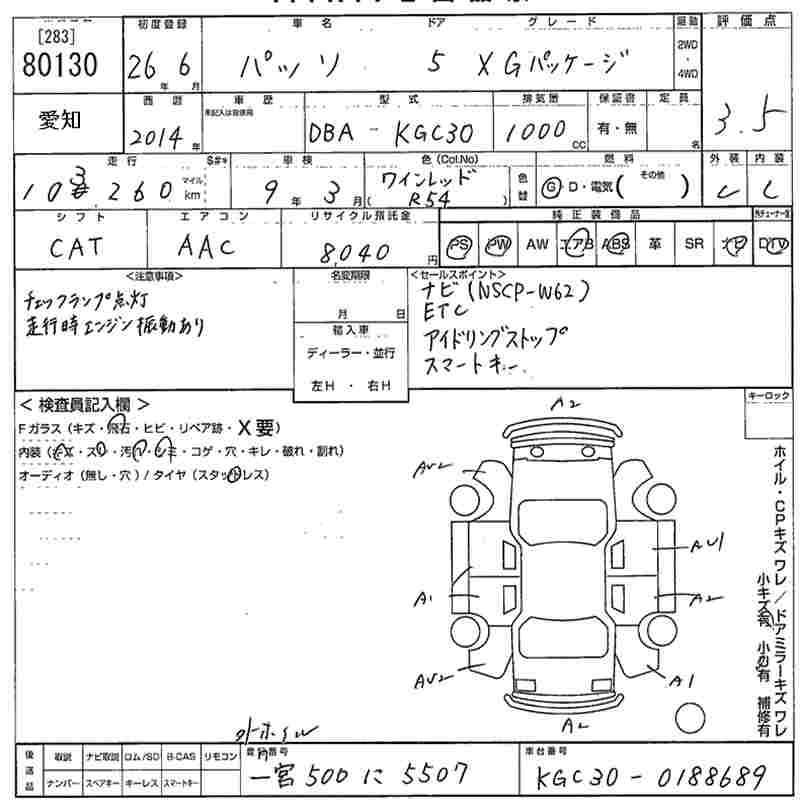 [283]
80130
初度登録 車名 ドア グレード 駆動 評価点
26年6月 パッソ 5 XGパッケージ 2WD・4WD 3.5
愛知
西暦 車歴 型式 排気量 保証書 定員
2014年 未記入は自家用 DBA-KGC30 1000CC 有・無 名
走行 S#* 車検 色(Col.No) 燃料 外装 内装
103,260 マイル km 9年3月 (ワインレッド R54) 色替 G・D・電気(その他) C C
シフト エアコン リサイクル預託金 純正装備品
CAT AAC 8,040円 PS PW AW エアB ABS 革 SR ナビ DTV
<注意事項> 名変期限 <セールスポイント>
チェックランプ点灯
走行時エンジン振動あり
月 日
輸入車
ディーラー・並行
左H ・ 右H
ナビ(NSCP-W62)
ETC
アイドリングストップ
スマートキー
キーロック
<検査員記入欄>
Fガラス(キズ・飛石・ヒビ・リペア跡・X要)
内装(キズ・スレ・汚れ・シミ・コゲ・穴・キレ・破れ・割れ)
オーディオ(無し・穴)/タイヤ(スタッドレス)
A2
AU2
AU1
A1
A2
AU2
A1
A2
ホイル・CPキズ ワレ/ドアミラーキズ ワレ
小キズ有 小凹有 補修有
後送品 取説 ナビ取説 ロム/SD B-CAS リモコン
ナンバー スペアキー キーレス スマートキー
登録番号 車台番号
一宮500に5507 KGC30-0188689